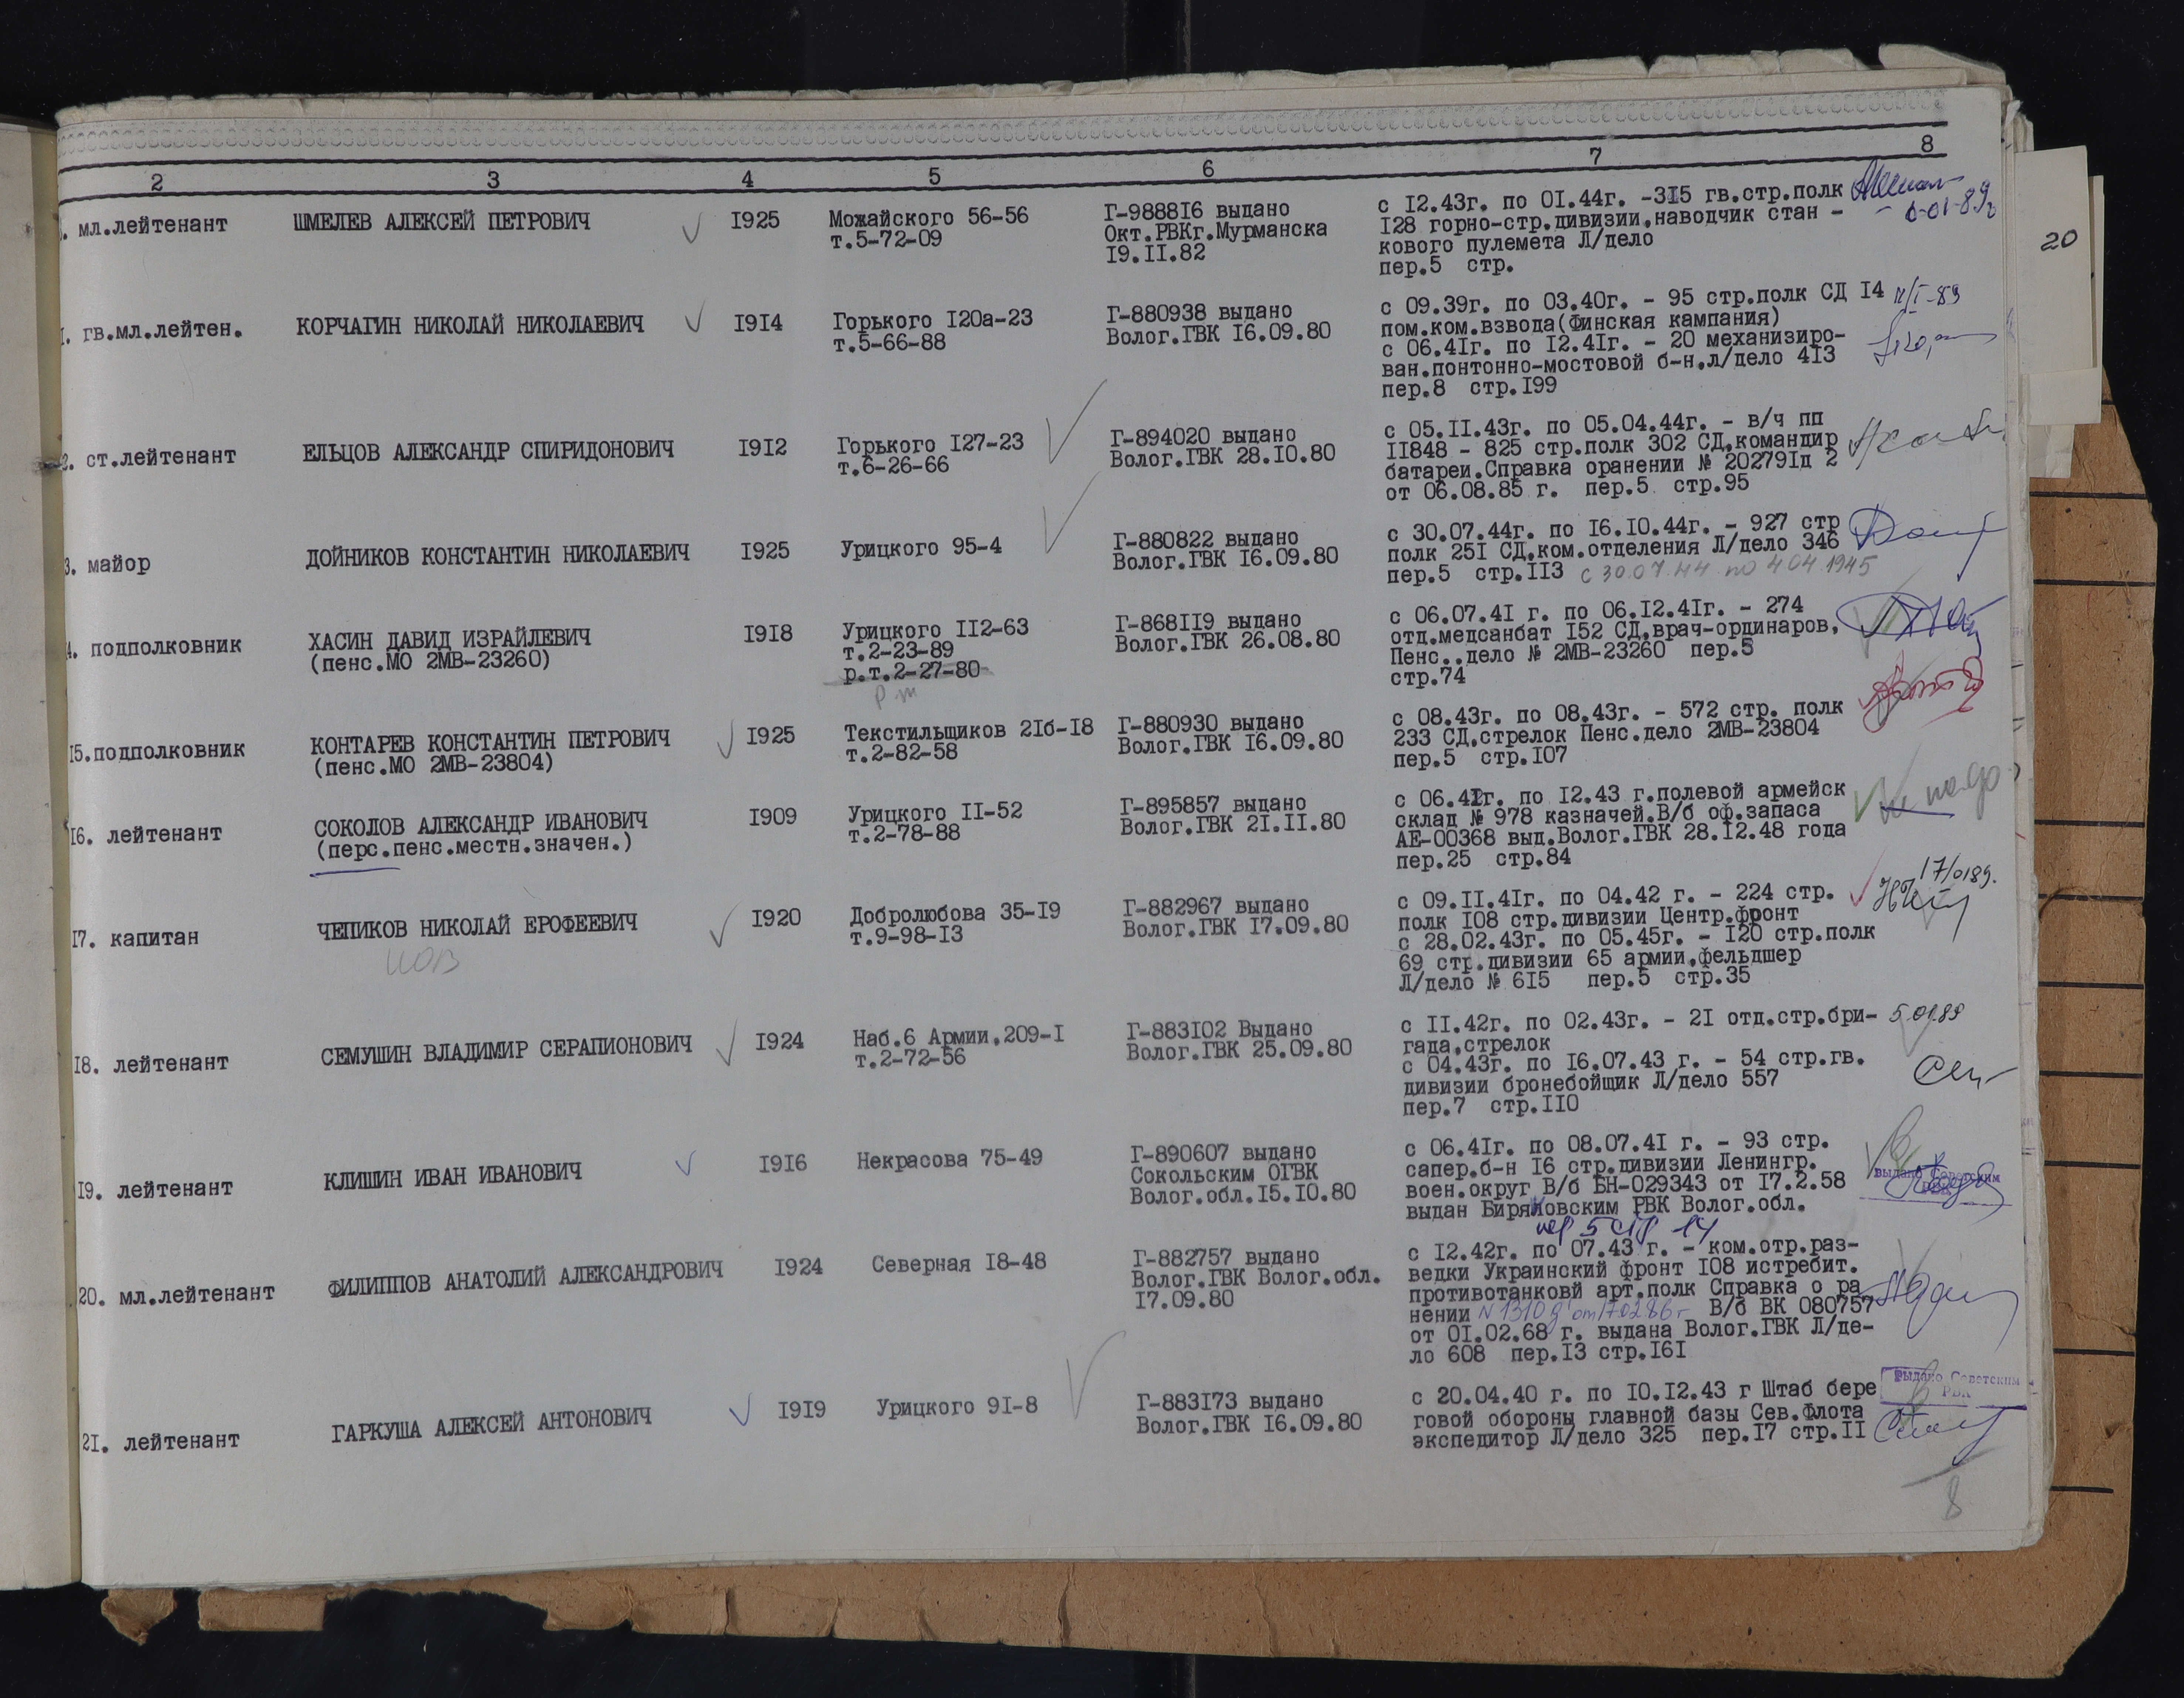 2 3 4 5 6 7 8
мл.лейтенант ШМЕЛЕВ АЛЕКСЕЙ ПЕТРОВИЧ I925 Можайского 56-56 Г-9888I6 выдано с I2.43г. по 0I.44г. -3I5 гв.стр.полк
т.5-72-09 Окт.РВКг.Мурманска I28 горно-стр.дивизии,наводчик стан -
I9.II.82 кового пулемета Л/дело
пер.5 стр.
20
гв.мл.лейтен. КОРЧАГИН НИКОЛАЙ НИКОЛАЕВИЧ I9I4 Горького I20а-23 Г-880938 выдано с 09.39г. по 03.40г. - 95 стр.полк СД I4 11/I-89
т.5-66-88 Волог.ГВК I6.09.80 пом.ком.взвода(Финская кампания)
с 06.4Iг. по I2.4Iг. - 20 механизиро-
ван.понтонно-мостовой б-н.л/дело 4I3
пер.8 стр.I99
2. ст.лейтенант ЕЛЬЦОВ АЛЕКСАНДР СПИРИДОНОВИЧ I9I2 Горького I27-23 Г-894020 выдано с 05.II.43г. по 05.04.44г. - в/ч пп
т.6-26-66 Волог.ГВК 28.I0.80 II848 - 825 стр.полк 302 СД,командир
батареи.Справка оранении № 20279Iд 2
от 06.08.85 г. пер.5 стр.95
3. майор ДОЙНИКОВ КОНСТАНТИН НИКОЛАЕВИЧ I925 Урицкого 95-4 Г-880822 выдано с 30.07.44г. по I6.I0.44г. - 927 стр
Волог.ГВК I6.09.80 полк 25I СД,ком.отделения Л/дело 346
пер.5 стр.II3 с 30.07.44 по 4 04 1945
4. подполковник ХАСИН ДАВИД ИЗРАЙЛЕВИЧ I9I8 Урицкого II2-63 Г-868II9 выдано с 06.07.4I г. по 06.I2.4Iг. - 274
(пенс.МО 2МВ-23260) т.2-23-89 Волог.ГВК 26.08.80 отд.медсанбат I52 СД,врач-ординаров,
р.т.2-27-80 Пенс..дело № 2МВ-23260 пер.5
стр.74
I5.подполковник КОНТАРЕВ КОНСТАНТИН ПЕТРОВИЧ I925 Текстильщиков 2Iб-I8 Г-880930 выдано с 08.43г. по 08.43г. - 572 стр. полк
(пенс.МО 2МВ-23804) т.2-82-58 Волог.ГВК I6.09.80 233 СД,стрелок Пенс.дело 2МВ-23804
пер.5 стр.I07
I6. лейтенант СОКОЛОВ АЛЕКСАНДР ИВАНОВИЧ I909 Урицкого II-52 Г-895857 выдано с 06.42г. по I2.43 г.полевой армейск
(перс.пенс.местн.значен.) т.2-78-88 Волог.ГВК 2I.II.80 склад № 978 казначей.В/б оф.запаса
АЕ-00368 выд.Волог.ГВК 28.I2.48 года
пер.25 стр.84
I7. капитан ЧЕПИКОВ НИКОЛАЙ ЕРОФЕЕВИЧ I920 Добролюбова 35-I9 Г-882967 выдано с 09.II.4Iг. по 04.42 г. - 224 стр. 17/0189.
т.9-98-I3 Волог.ГВК I7.09.80 полк I08 стр.дивизии Центр.фронт
с 28.02.43г. по 05.45г. - I20 стр.полк
69 стр.дивизии 65 армии,фельдшер
Л/дело № 6I5 пер.5 стр.35
I8. лейтенант СЕМУШИН ВЛАДИМИР СЕРАПИОНОВИЧ I924 Наб.6 Армии.209-I Г-883I02 Выдано с II.42г. по 02.43г. - 2I отд.стр.бри- 5.01.89
т.2-72-56 Волог.ГВК 25.09.80 гада,стрелок
с 04.43г. по I6.07.43 г. - 54 стр.гв.
дивизии бронебойщик Л/дело 557
пер.7 стр.II0
I9. лейтенант КЛИШИН ИВАН ИВАНОВИЧ I9I6 Некрасова 75-49 Г-890607 выдано с 06.4Iг. по 08.07.4I г. - 93 стр.
Сокольским ОГВК сапер.б-н I6 стр.дивизии Ленингр. выдано Советским
Волог.обл.I5.I0.80 воен.округ В/б БН-029343 от I7.2.58 РВК
выдан Биряковским РВК Волог.обл.
пер 5 стр 14
20. мл.лейтенант ФИЛИППОВ АНАТОЛИЙ АЛЕКСАНДРОВИЧ I924 Северная I8-48 Г-882757 выдано с I2.42г. по 07.43 г. - ком.отр.раз-
Волог.ГВК Волог.обл. ведки Украинский фронт I08 истребит.
I7.09.80 противотанковй арт.полк Справка о ра
нении N 1310 д от 17.02.86 г В/б ВК 080757
от 0I.02.68 г. выдана Волог.ГВК Л/де-
ло 608 пер.I3 стр.I6I
2I. лейтенант ГАРКУША АЛЕКСЕЙ АНТОНОВИЧ I9I9 Урицкого 9I-8 Г-883I73 выдано с 20.04.40 г. по I0.I2.43 г Штаб бере Выдано Советским
Волог.ГВК I6.09.80 говой обороны главной базы Сев.Флота РВК
экспедитор Л/дело 325 пер.I7 стр.II
8